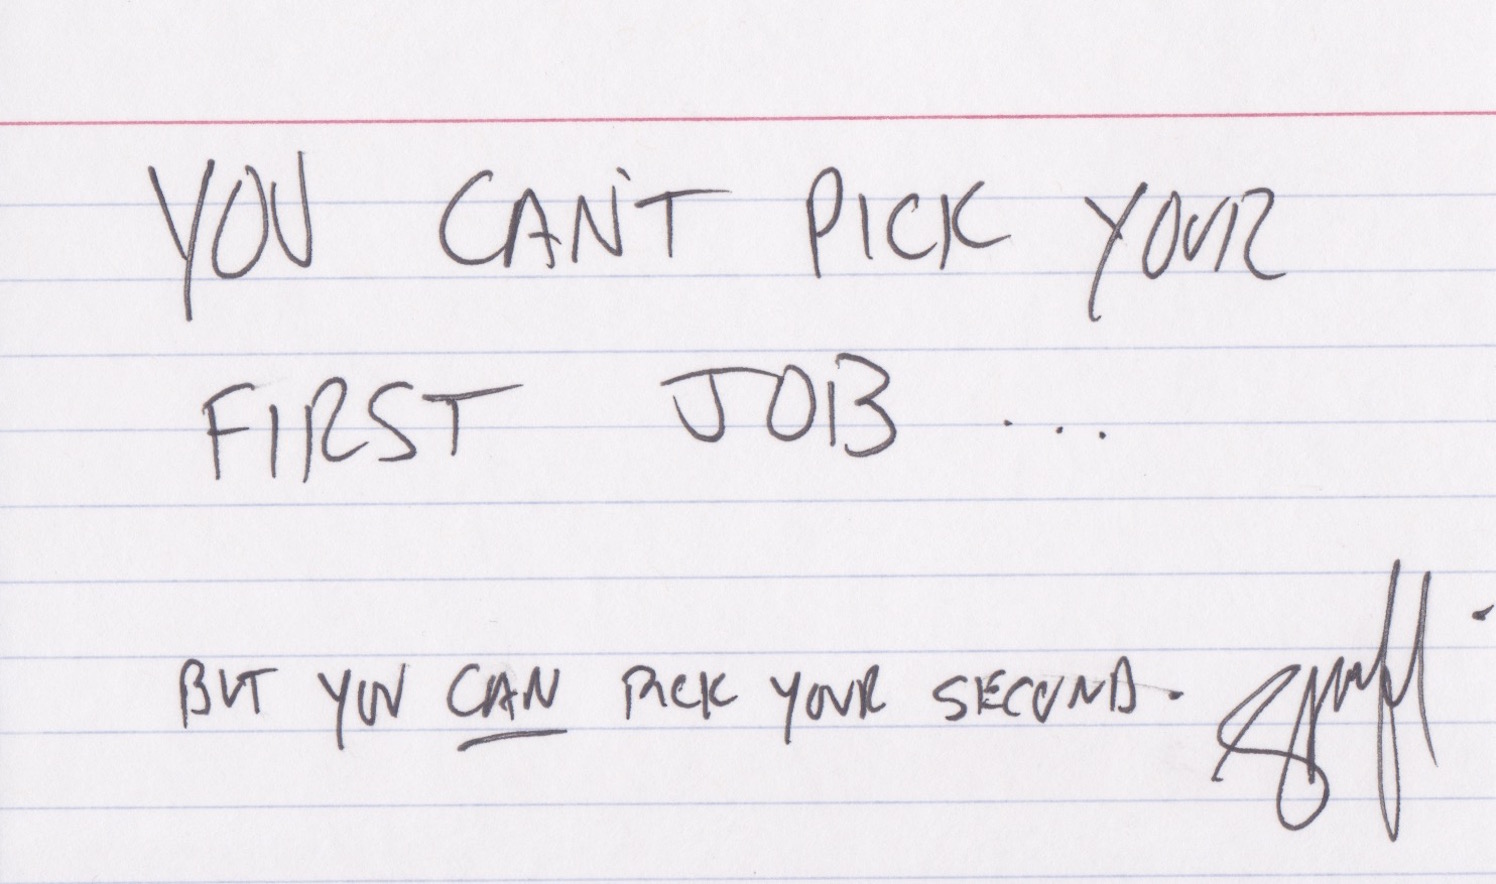 YOU CAN'T PICK YOUR
FIRST JOB ...
BUT YOU CAN PICK YOUR SECOND.